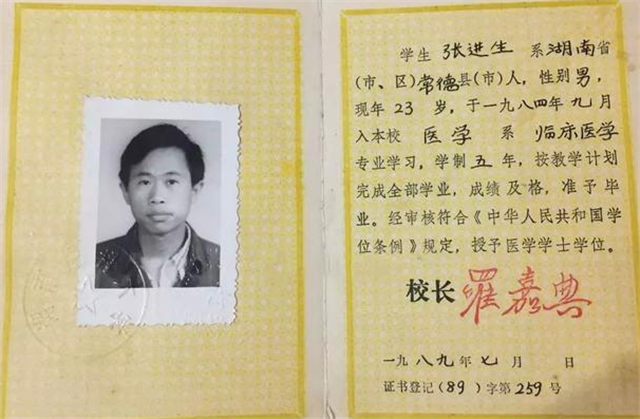 学生 张进生 系 湖南省
(市、区)常德县(市)人，性别男，
现年 23 岁，于一九八四年九月
入本校 医学 系 临床医学
专业学习，学制五年，按教学计划
完成全部学业，成绩及格，准予毕
业。经审核符合《中华人民共和国学
位条例》规定，授予医学学士学位。
校长 罗嘉典
一九八九年七月 日
证书登记(89)字第259号